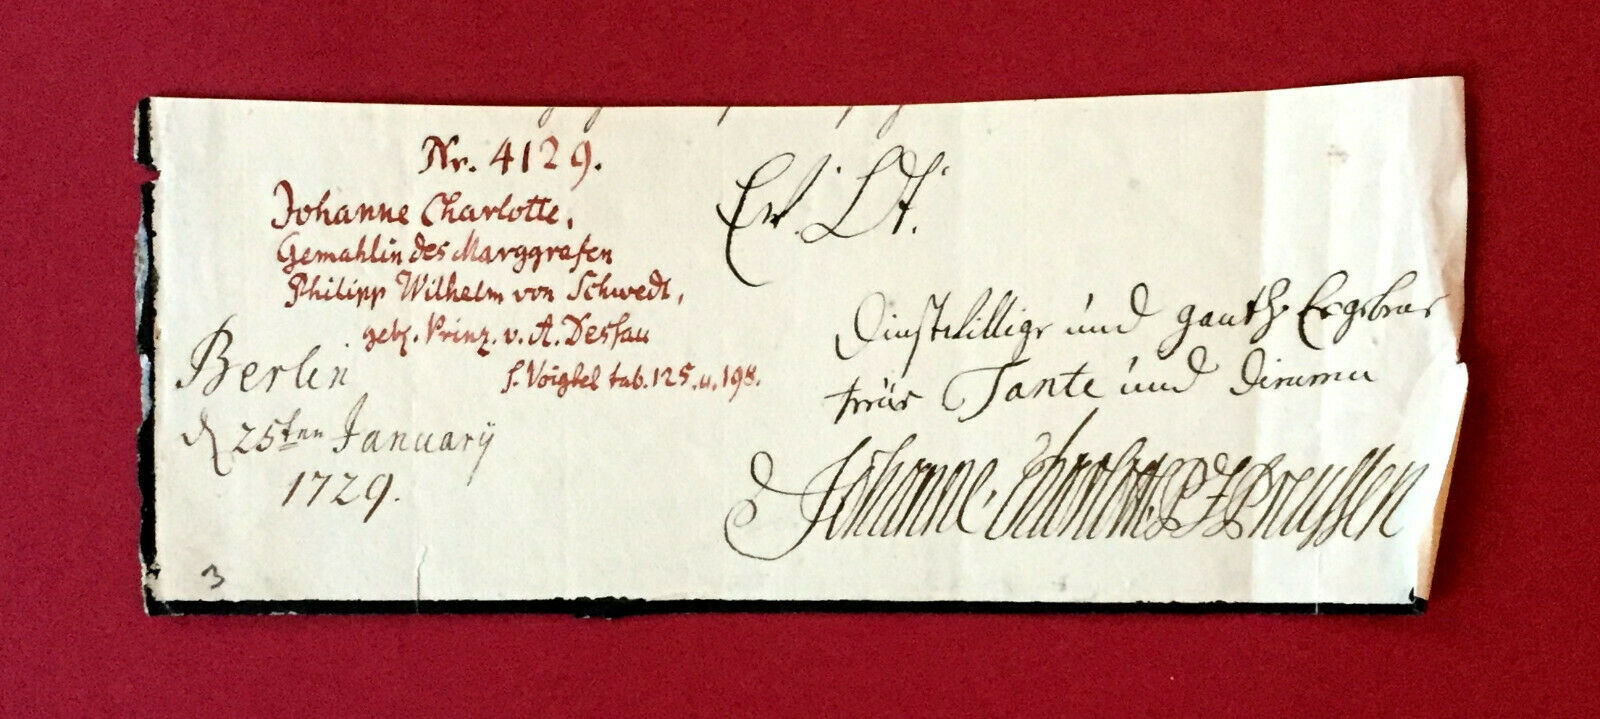 Nr. 4129.
Johanne Charlotte,
Gemahlin des Marggrafen
Philipp Wilhelm von Schwedt,
geb. Prinz. v. A. Dessau
s. Voigtel tab. 125. u. 198.
Berlin
d 25ten Januarÿ
1729.
3
Ew. Ld.
Dinstwillige und gantz Ergebene
Tante und Dienerin
Johanne Charlotte P Z Preussen